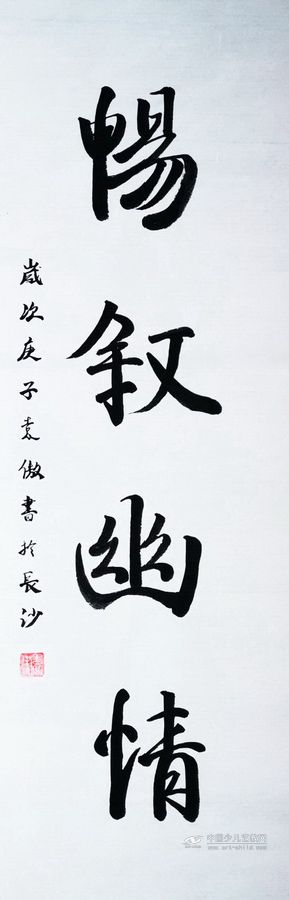 暢叙幽情
歲次庚子袁傲書於長沙
中国少儿艺教网
www.art-child.com